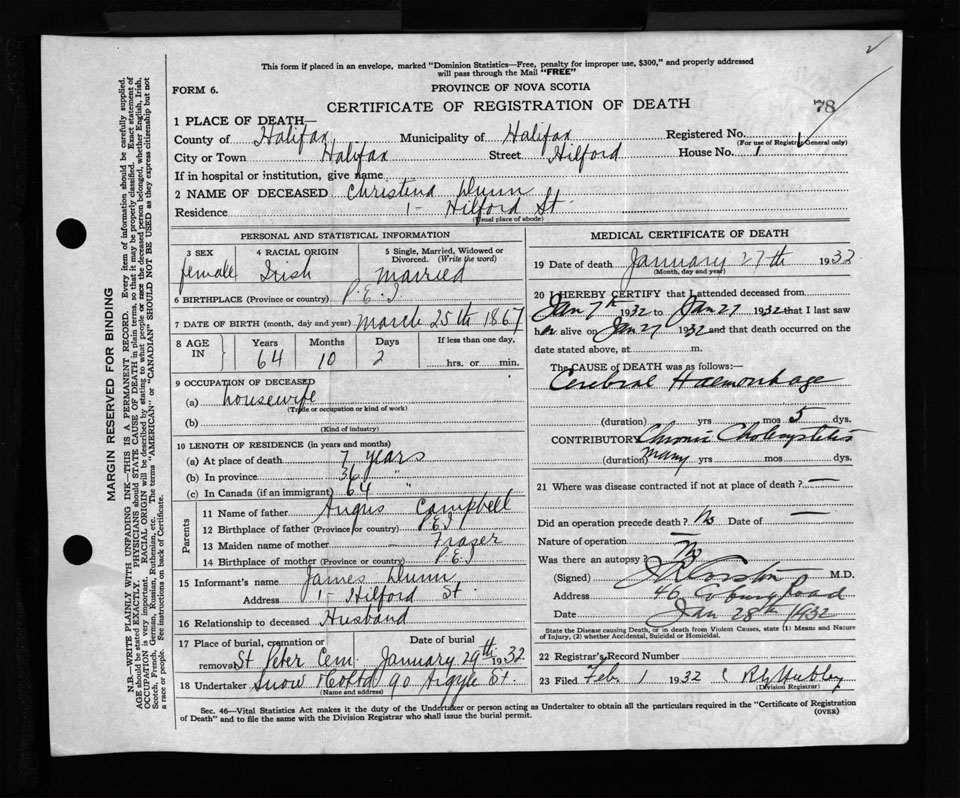 This form if placed in an envelope, marked "Dominion Statistics—Free, penalty for improper use, $300," and properly addressed
will pass through the Mail "FREE"
FORM 6.
PROVINCE OF NOVA SCOTIA
CERTIFICATE OF REGISTRATION OF DEATH
78
1 PLACE OF DEATH—
County of Halifax Municipality of Halifax Registered No.
(For use of Registrar General only)
City or Town Halifax Street Hilford House No. 1
If in hospital or institution, give name
2 NAME OF DECEASED Christina Dunn
Residence 1 - Hilford St.
(Usual place of abode)
PERSONAL AND STATISTICAL INFORMATION
3 SEX 4 RACIAL ORIGIN 5 Single, Married, Widowed or Divorced. (Write the word)
female Irish Married
6 BIRTHPLACE (Province or country) P.E.I
7 DATE OF BIRTH (month, day and year) March 25th 1867
8 AGE IN Years Months Days If less than one day,
64 10 2 hrs. or min.
9 OCCUPATION OF DECEASED
(a) housewife
(Trade or occupation or kind of work)
(b)
(Kind of industry)
10 LENGTH OF RESIDENCE (in years and months)
(a) At place of death 7 years
(b) In province 36 "
(c) In Canada (if an immigrant) 64 "
Parents
11 Name of father Angus Campbell
12 Birthplace of father (Province or country) P.E.I
13 Maiden name of mother Fraser
14 Birthplace of mother (Province or country) P.E.I
15 Informant's name James Dunn
Address 1 - Hilford St.
16 Relationship to deceased Husband
17 Place of burial, cremation or removal Date of burial
St Peter Cem. January 29th 1932
18 Undertaker Snow & Co Ltd 90 Argyle St.
(Name and address)
MEDICAL CERTIFICATE OF DEATH
19 Date of death January 27th 1932
(Month, day and year)
20 I HEREBY CERTIFY that I attended deceased from
Jan 7th 1932 to Jan 27 1932 that I last saw
her alive on Jan 27 1932 and that death occurred on
date stated above, at m.
The CAUSE OF DEATH was as follows:
Cerebral Haemorrhage
(duration) yrs mos 5 dys.
CONTRIBUTORY Chronic Cholecystitis
(duration) many yrs mos dys.
21 Where was disease contracted if not at place of death? —
Did an operation precede death? No Date of —
Nature of operation —
Was there an autopsy? No
(Signed) M.D.
Address 46 Coburg Road
Date Jan 28th 1932
State the Disease causing Death, or in death from Violent Causes, state (1) Means and Nature
of Injury, (2) whether Accidental, Suicidal or Homicidal.
22 Registrar's Record Number
23 Filed Feb. 1 1932
(Division Registrar)
Sec. 46—Vital Statistics Act makes it the duty of the Undertaker or person acting as Undertaker to obtain all the particulars required in the "Certificate of Registration
of Death" and to file the same with the Division Registrar who shall issue the burial permit.
(OVER)
MARGIN RESERVED FOR BINDING
N.B.—WRITE PLAINLY WITH UNFADING INK—THIS IS A PERMANENT RECORD. Every item of information should be carefully supplied.
AGE should be stated EXACTLY. PHYSICIANS should STATE CAUSE OF DEATH in plain terms, so that it may be properly classified. Exact statement of
OCCUPATION is very important. RACIAL ORIGIN will be described by stating to what people or race the deceased person belonged, whether English, Irish,
Scotch, French, German, Russian, Ruthenian, etc. The terms "AMERICAN" or "CANADIAN" SHOULD NOT BE USED as they express citizenship but not
a race or people. See instructions on back of Certificate.